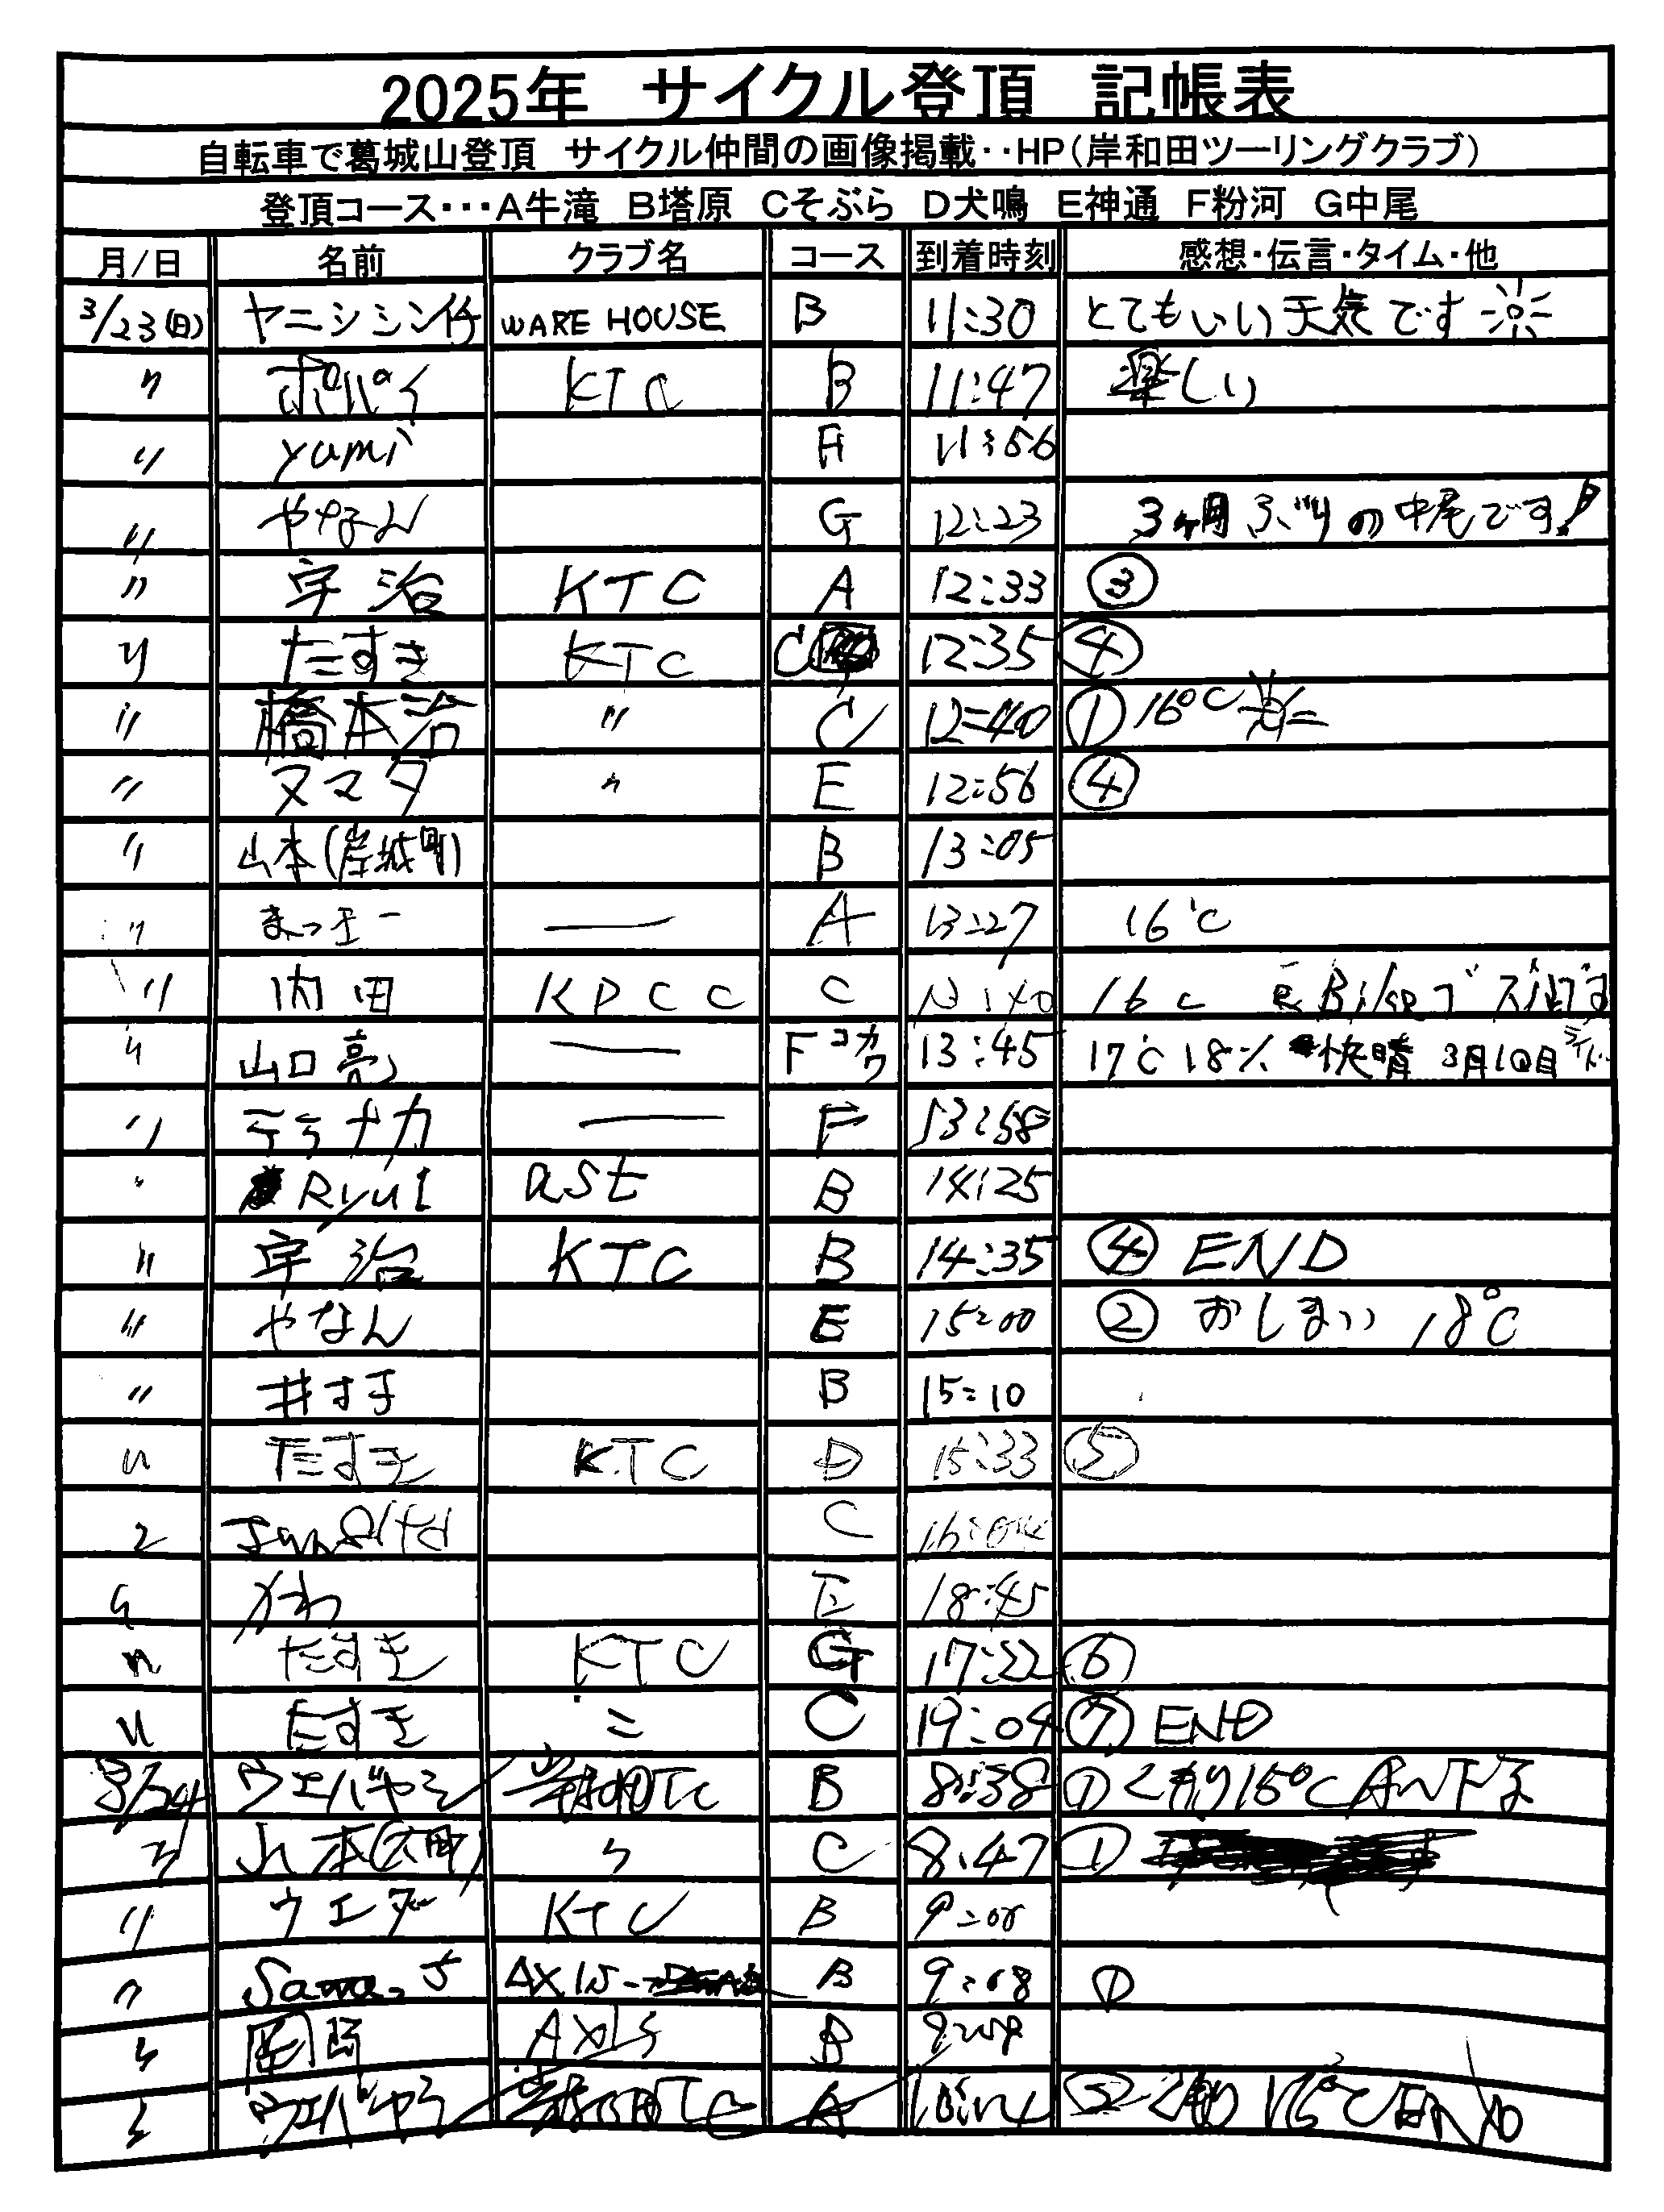 2025年 サイクル登頂 記帳表
自転車で葛城山登頂 サイクル仲間の画像掲載‥HP(岸和田ツーリングクラブ)
登頂コース･･･A牛滝 B塔原 Cそぶら D犬鳴 E神通 F粉河 G中尾
月/日 名前 クラブ名 コース 到着時刻 感想・伝言・タイム・他
3/23(日) WARE HOUSE B 11:30 とてもいい天気です
〃 ポパイ KTC B 11:47 楽しい
〃 yumi A 11:56
〃 やなん G 12:23 3ヶ月ぶりの中尾です!
〃 宇治 KTC A 12:33 ③
〃 たすき KTC C 12:35 ④
〃 橋本治 〃 C 12:40 ① 16℃
〃 ヌマタ 〃 E 12:56 ④
〃 山本(岸城町) B 13:05
〃 まっエー — A 13:27 16℃
〃 内田 KPCC C 16℃
〃 山口亮 — F コカワ 13:45 17℃ 18% 快晴 3月10日目
〃 テラナカ — F 13:58
〃 Ryui ast B 14:25
〃 宇治 KTC B 14:35 ④ END
〃 やなん E 15:00 ② おしまい 18℃
〃 B 15:10
〃 たすき KTC D 15:33 ⑤
C 16:04
〃 かわ E 18:45
〃 たすき KTC G 17:22 ⑥
〃 たすき 〃 C 19:04 ⑦ END
3/24 ウエバヤシ B 8:38 ① くもり 15℃
〃 山本(六町) 〃 C 8:47 ①
〃 ウエダ KTC B
〃 AXIS B 9:08 ①
〃 AXIS B
〃 ウエバヤシ A ② 15℃ END